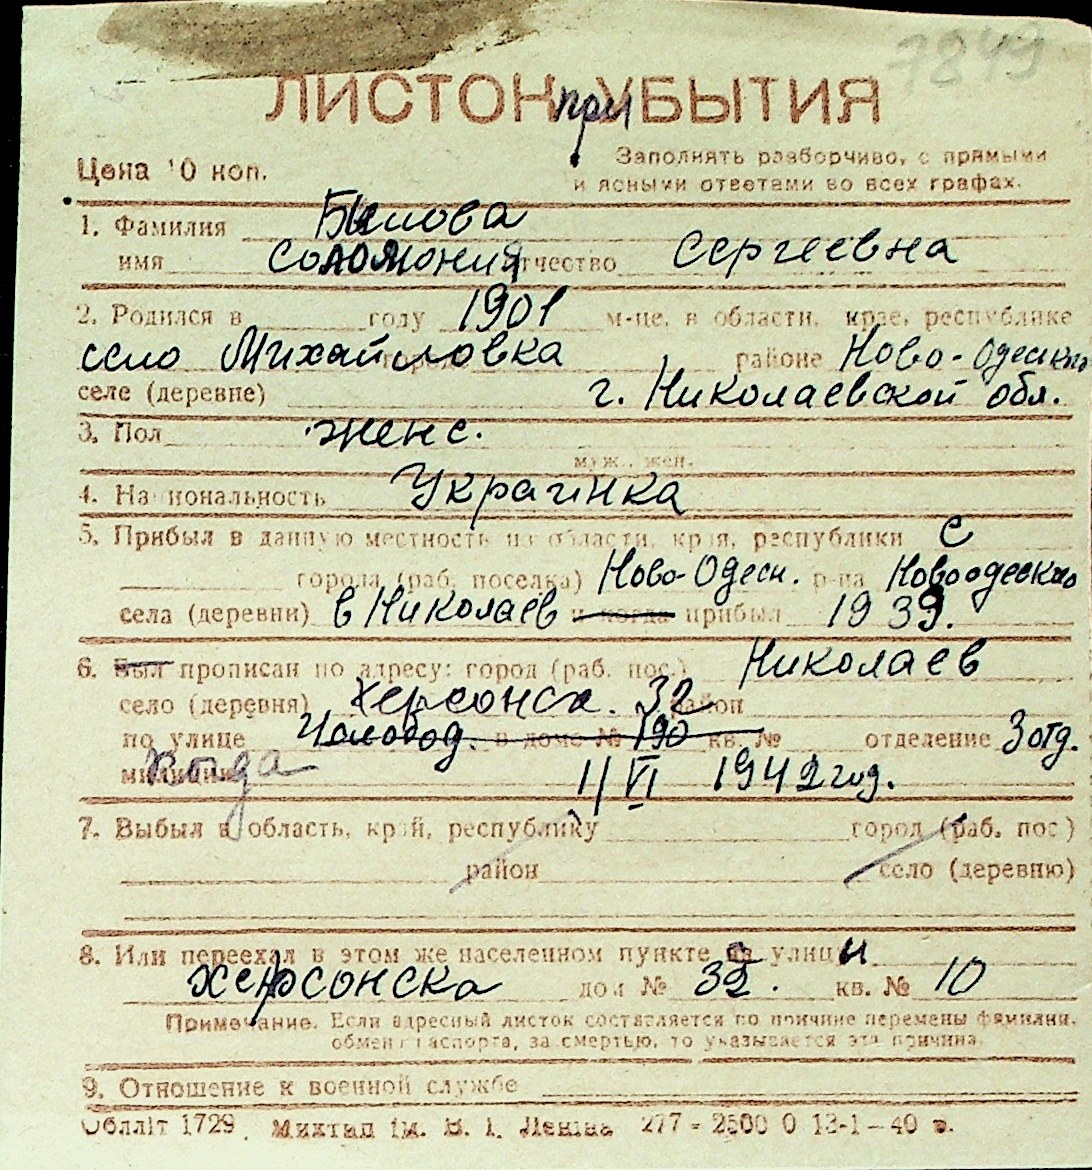 7849
ЛИСТОК приУБЫТИЯ
Цена 10 коп.
Заполнять разборчиво, с прямыми
и ясными ответами во всех графах.
1. Фамилия Былова
имя Соломония отчество Сергеевна
2. Родился в году 1901 м-це, в области, крае, республике
село Михайловка районе Ново-Одесско
селе (деревне) г. Николаевской обл.
3. Пол женс.
муж., жен.
4. Национальность Украинка
5. Прибыл в данную местность из области, края, республики С
города (раб. поселка) Ново-Одесн. р-на Новоодеско
села (деревни) в Николаев и когда прибыл 1939.
6. Был прописан по адресу: город (раб. пос.) Николаев
село (деревня) Херсонск. 32 район
по улице в доме № 190 кв. № отделение 3 отд.
милиции когда 1/VI 1942 год.
7. Выбыл в область, край, республику город (раб. пос)
район село (деревню)
8. Или переехал в этом же населенном пункте на улицы
Херсонска дом № 32. кв. № 10
Примечание. Если адресный листок составляется по причине перемены фамилии,
обмен паспорта, за смертью, то указывается эта причина.
9. Отношение к военной службе
Облліт 1729 Миктип ім. В. І. Леніна 277 - 2500 0 13-1-40 р.